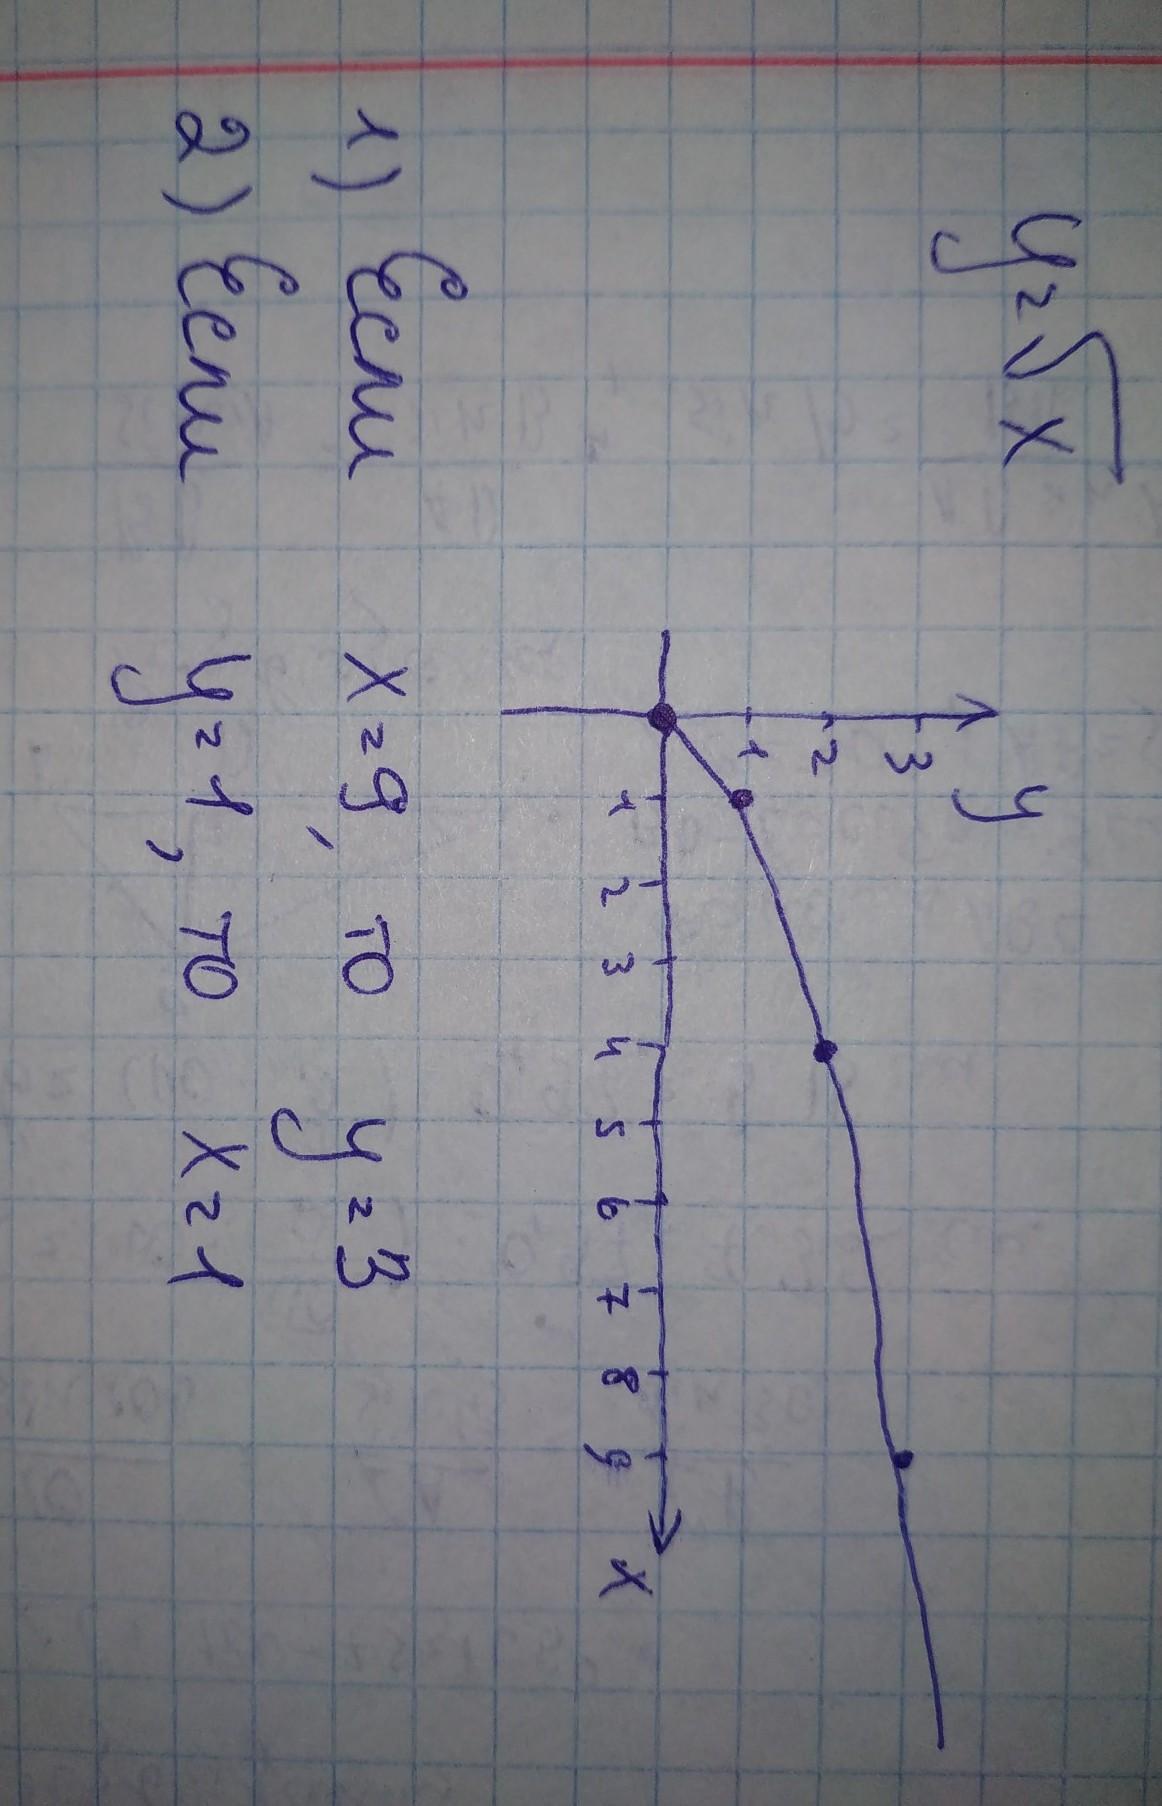 y=√x
y
3
2
1
1 2 3 4 5 6 7 8 9 x
1) Если x=9, то y=3
2) Если y=1, то x=1